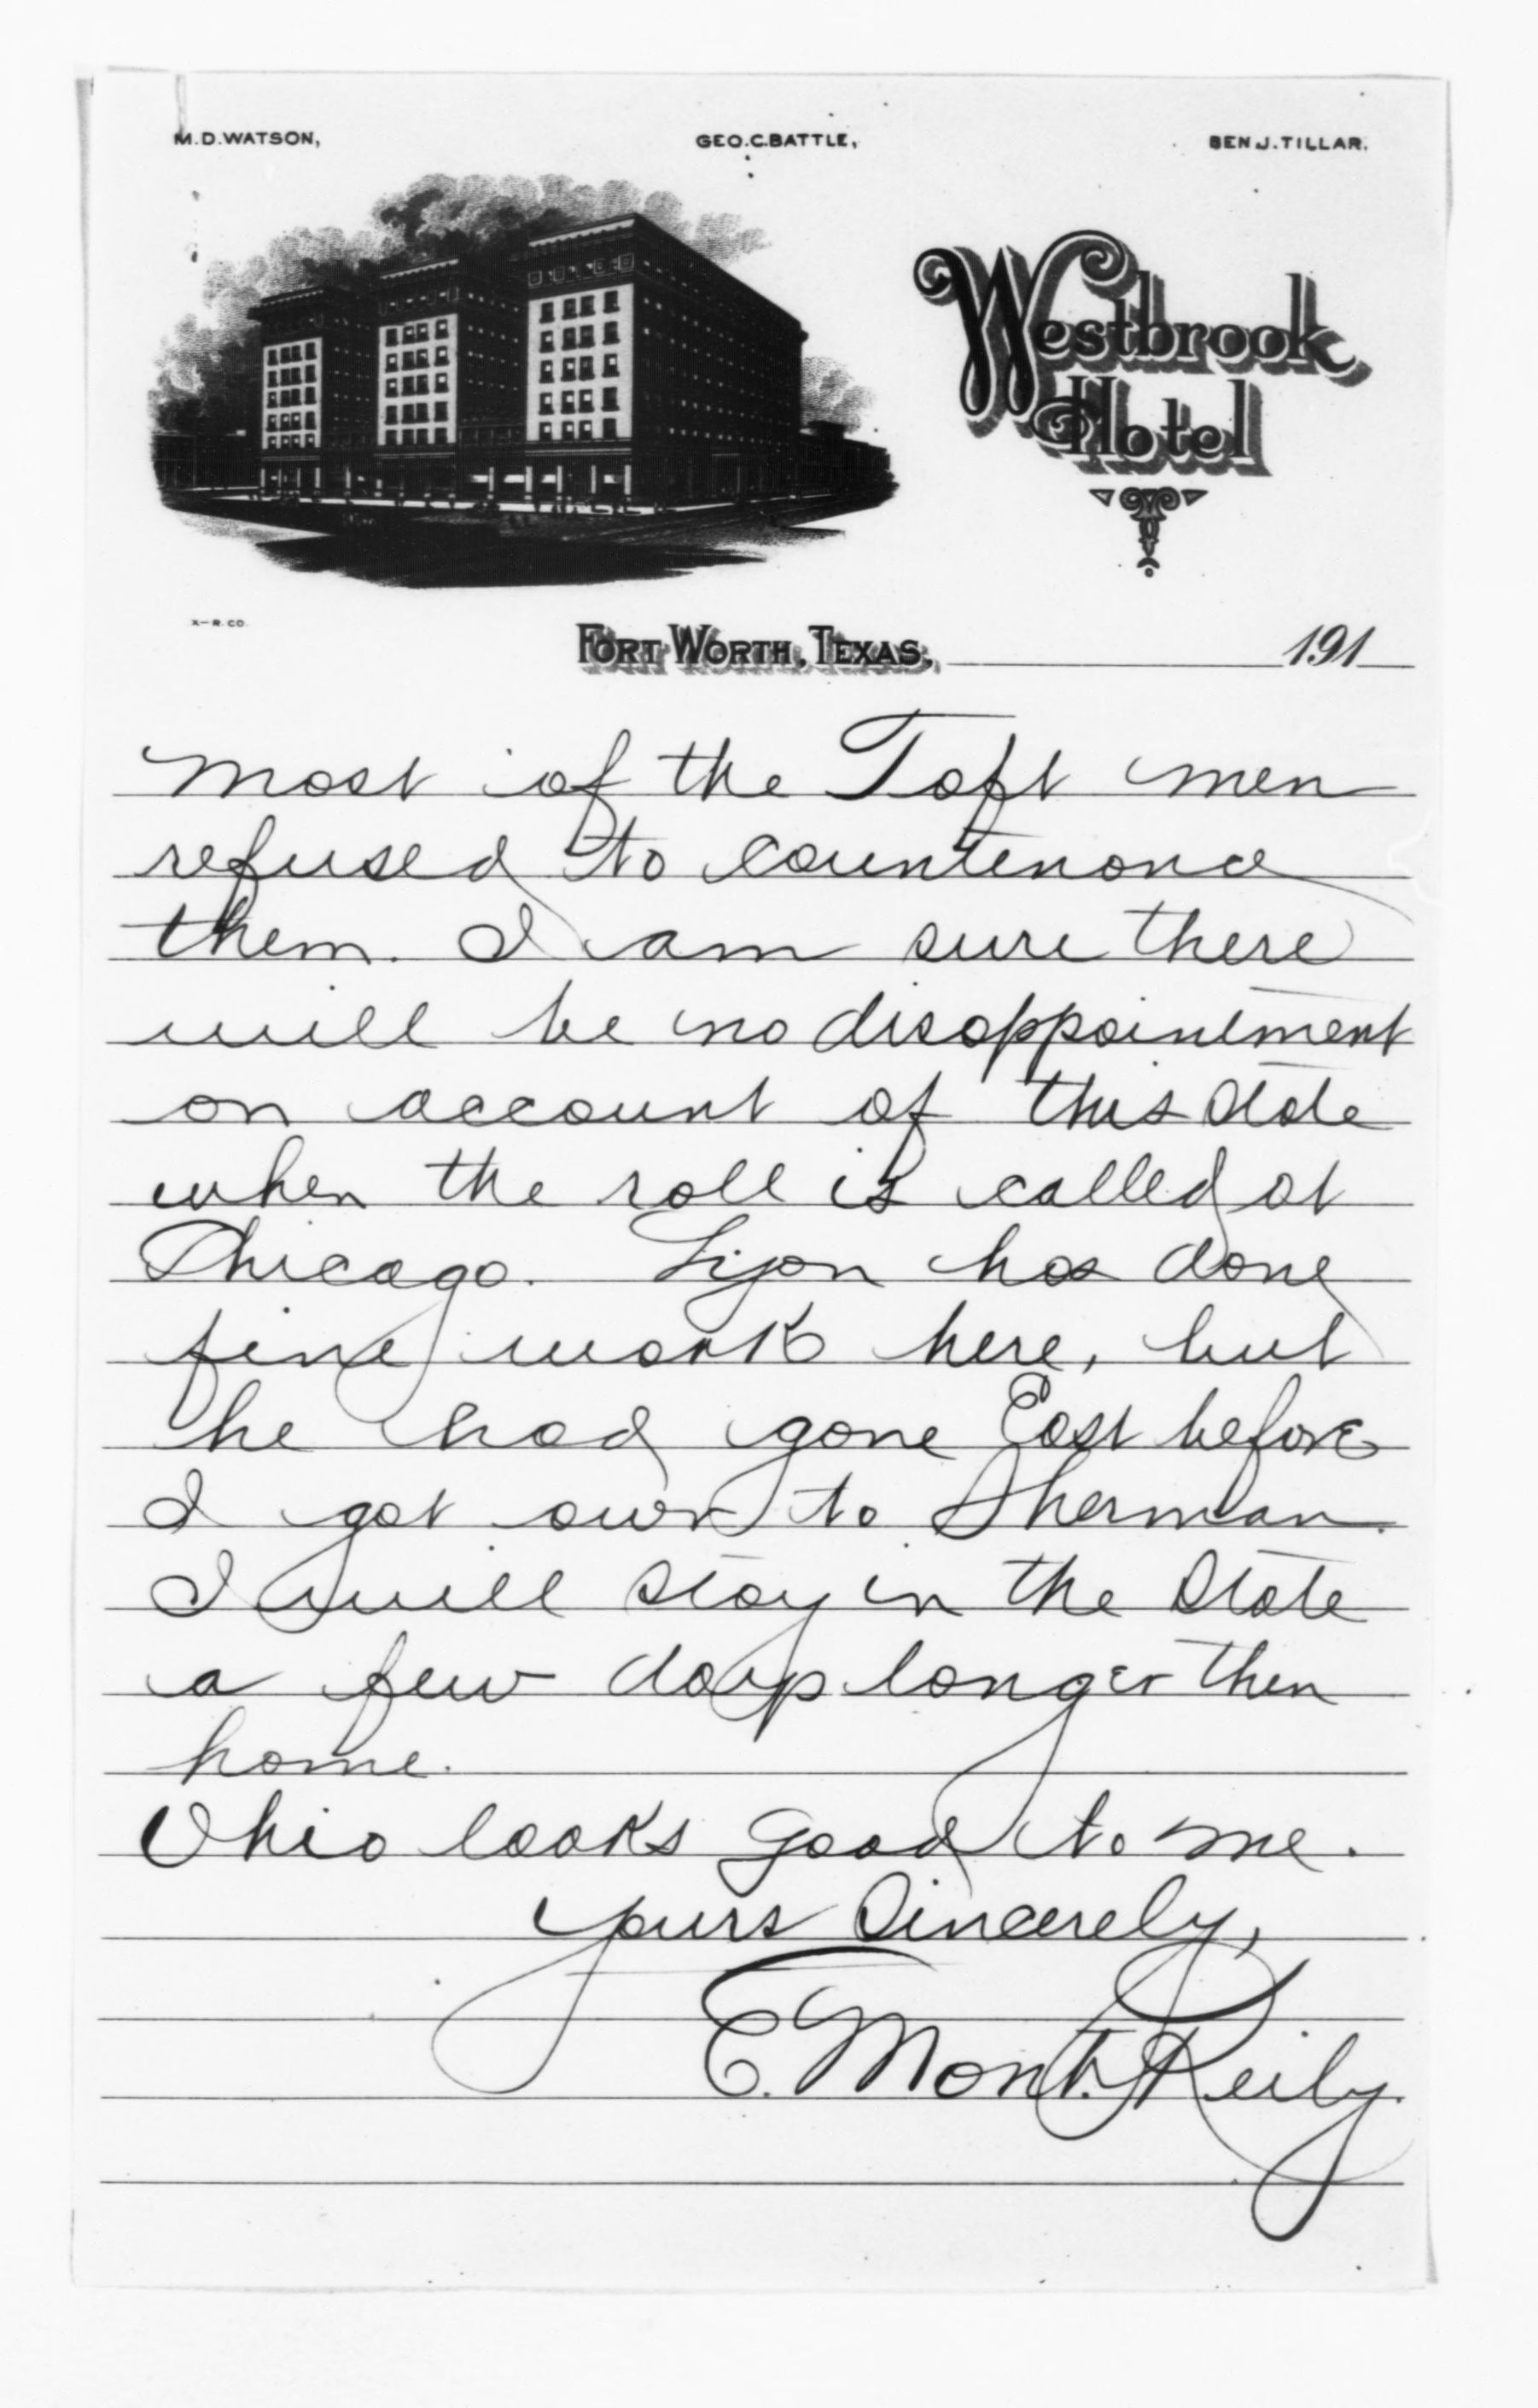 M.D.WATSON, GEO.C.BATTLE, BEN J.TILLAR.
Westbrook
Hotel
X-R.CO.
FORT WORTH, TEXAS, 191
most of the Taft men
refused to countenance
them. I am sure there
will be no disappointment
on account of this State
when the roll is called at
Chicago. Lyon has done
fine work here, but
he had gone East before
I got own to Sherman.
I will stay in the State
a few days longer then
home.
Ohio looks good to me.
Yours Sincerely,
E. Mont. Reily.